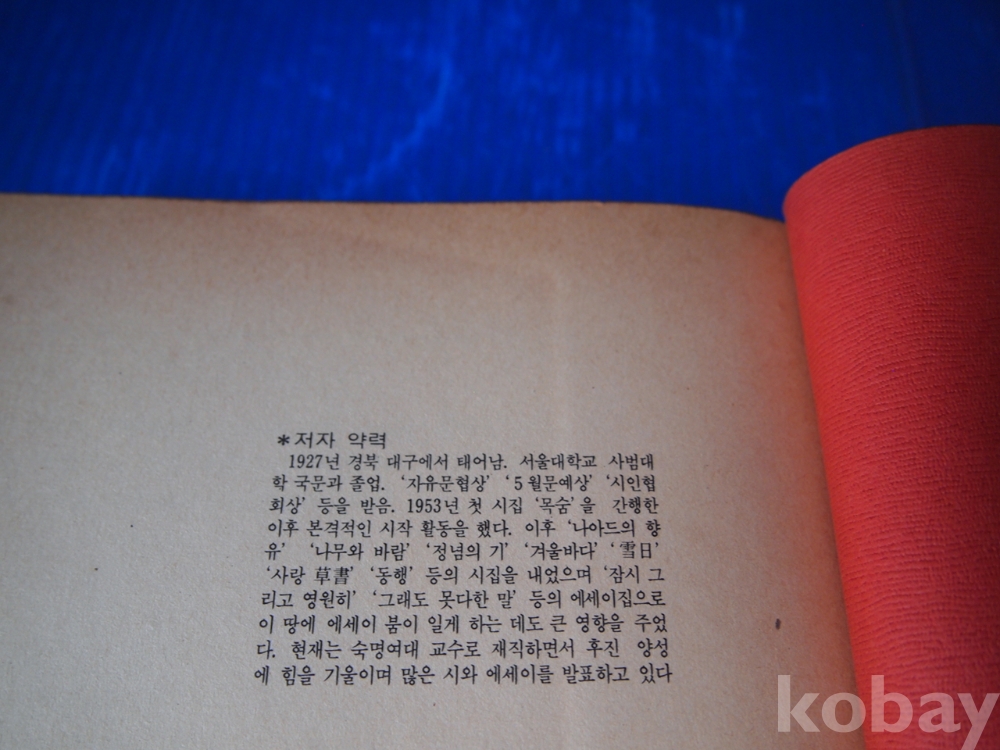 *저자 약력
1927년 경북 대구에서 태어남. 서울대학교 사범대
학 국문과 졸업. ‘자유문협상’ ‘5월문예상’ ‘시인협
회상’ 등을 받음. 1953년 첫 시집 ‘목숨’을 간행한
이후 본격적인 시작 활동을 했다. 이후 ‘나아드의 향
유’ ‘나무와 바람’ ‘정념의 기’ ‘겨울바다’ ‘雪日’
‘사랑 草書’ ‘동행’ 등의 시집을 내었으며 ‘잠시 그
리고 영원히’ ‘그래도 못다한 말’ 등의 에세이집으로
이 땅에 에세이 붐이 일게 하는 데도 큰 영향을 주었
다. 현재는 숙명여대 교수로 재직하면서 후진 양성
에 힘을 기울이며 많은 시와 에세이를 발표하고 있다
kobay